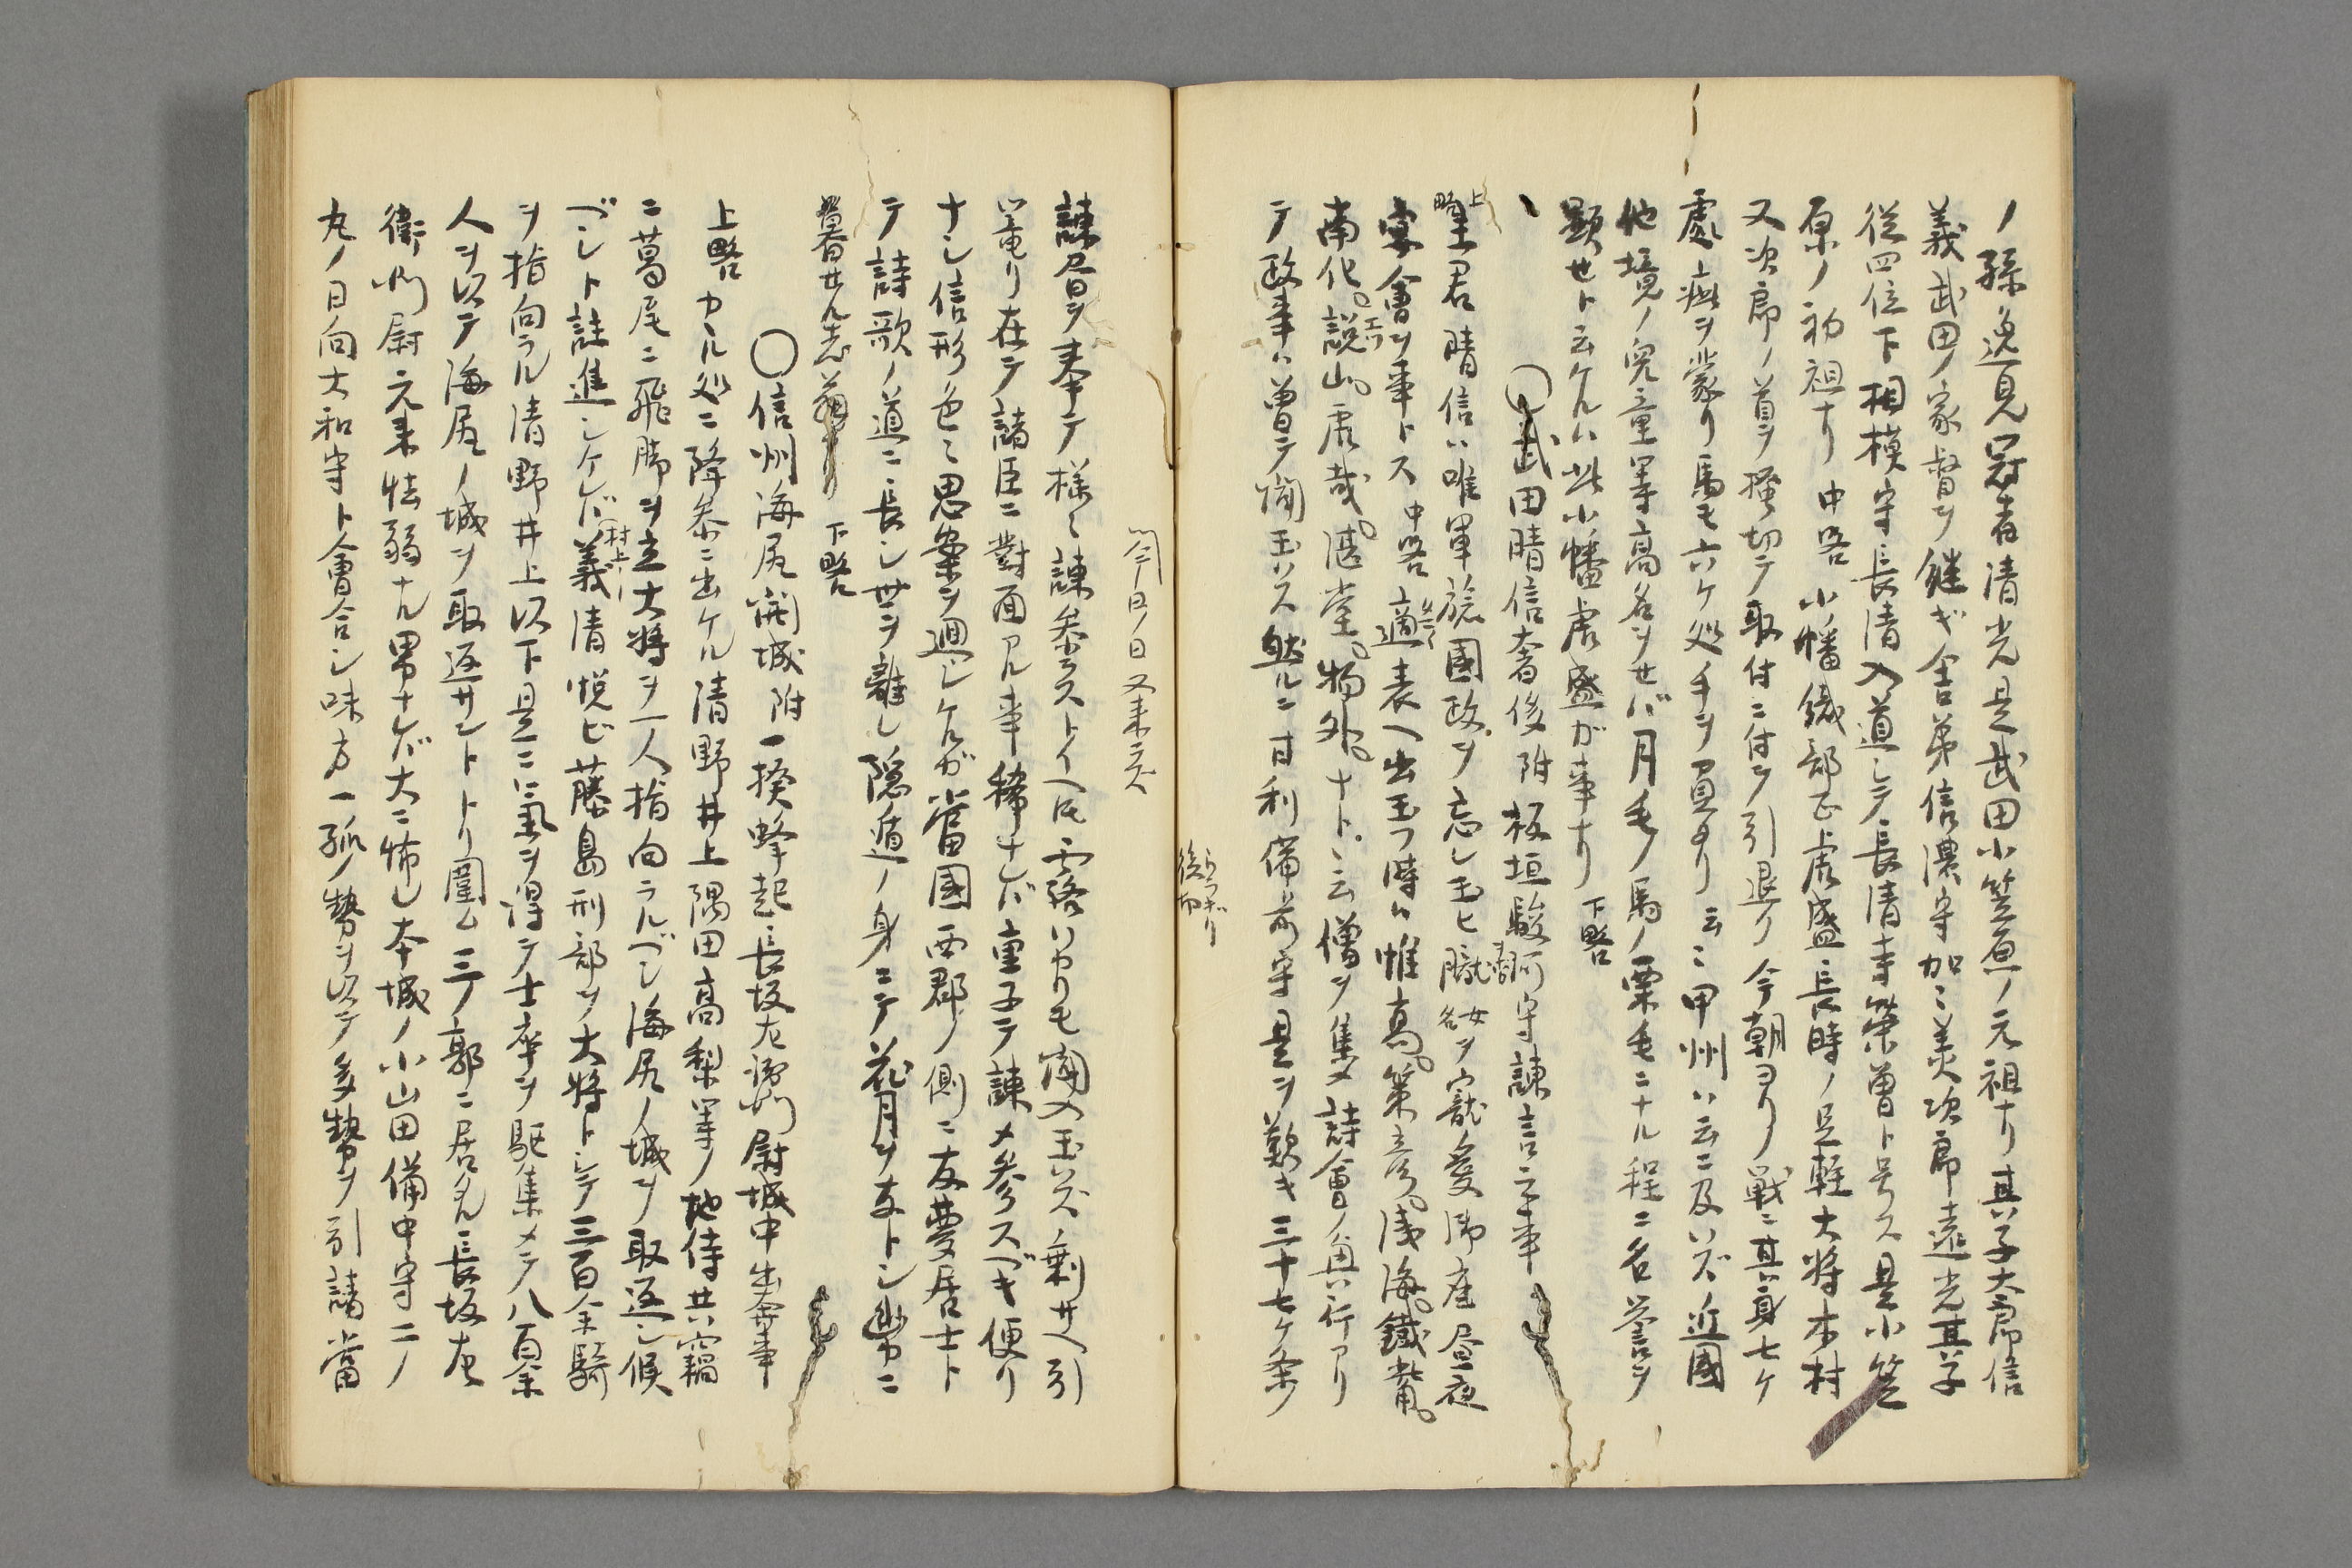 ノ孫逸見冠者清光是武田小笠原ノ元祖ナリ其子太郎信
義武田ノ家督ヲ継ギ舎弟信濃守加々美次郎遠光其子
従四位下相模守長清入道シテ長清寺栄曽ト号ス是小笠
原ノ初祖ナリ 中略 小幡織部正虎盛長時ノ足軽大将木村
又次郎ノ首ヲ掻切テ取付ニ付ヲ引退ク今朝ヨリノ戦ニ其身七ケ
処疵ヲ蒙リ馬モ六ケ処手ヲ負タリ云々甲州ハ云ニ及ハズ近國
他境ノ児童等高名ヲセバ月毛ノ馬ノ栗毛ニナル程ニ名誉ヲ
顕セト云ケルハ此小幡虎盛ガ事ナリ 下略
〇武田晴信奢侈附板垣駿河守諌言之事
上略 主君晴信ハ唯軍旅國政ヲ忘レ玉ヒ 女ヲ寵愛御座昼夜
宴會ヲ事トス 中略 適表ヘ出玉フ時ハ惟高。策彦。浅海。鐵
南化。説山。虎哉。湛堂。物外。ナトヽ云僧ヲ集メ詩會ノ興行アリ
テ政事ハ曽テ聞玉ハス然ルニ甘利備前守是ヲ歎キ三十七ケ条
諌書ヲ奉テ様々諌参ラストイヘ𪜈露ハカリモ聞入玉ハズ剰サヘ引
篭リ在テ諸臣ニ對面アル事稀ナレバ重子テ諌メ参スベキ便リ
ナシ信形色々思案ヲ廻シケルガ當國西郡ノ側ニ友夢居士ト
テ詩歌ノ道ニ長シ世ヲ離レ隠遁ノ身ニテ花月ヲ友トシ幽カニ
暮せル志 アリ 下略
〇信州海尻開城附一揆蜂起長坂左衛門尉城中出奔事
上略 カヽル処ニ降参ニ出ケル清野井上隅田高梨等ノ地侍共竊
ニ葛尾ニ飛脚ヲ立大将ヲ一人指向ラルベシ海尻ノ城ヲ取返シ候
ベシト註進シケレバ村上義清悦ビ藤島刑部ヲ大将トシテ三百余騎
ヲ指向ラル清野井上以下是ニ氣ヲ得テ士卒ヲ駆集メテ八百余
人ヲ以テ海尻ノ城ヲ取返サントトリ圍ム三ノ郭ニ居タル長坂左
衛門尉元来怯弱ナル男ナレバ大ニ怖レ本城ノ小山田備中守二ノ
丸ノ日向大和守ト會合シ味方一孤ノ勢ヲ以テ多勢ヲ引請當